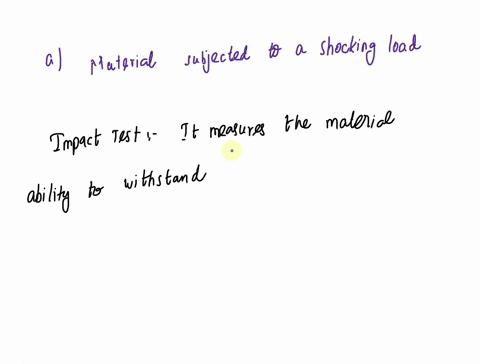 a) Material subjected to a shocking load
Impact Test :- It measures the material
ability to withstand